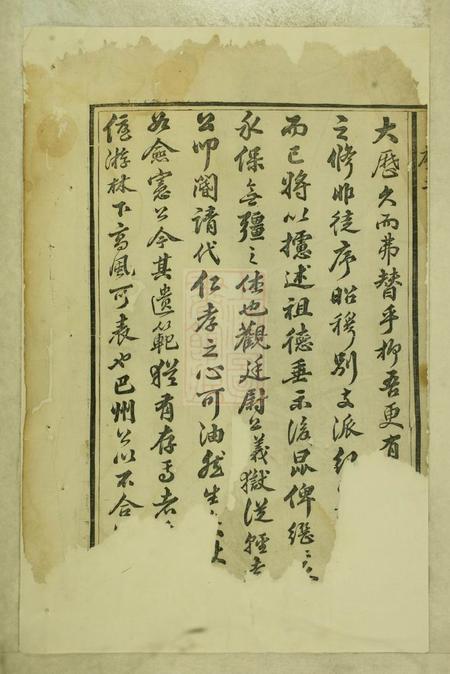 大歷久而弗替乎抑吾更有
之修非徒序昭穆別支派紀
而已將以攄述祖德垂示後昆俾繼
永保無疆之休也觀廷尉公義獄從輕
公叩閽請代仁孝之心可油然生
如僉憲公今其遺範猶有存焉者
優游林下高風可表也巴州公以不合